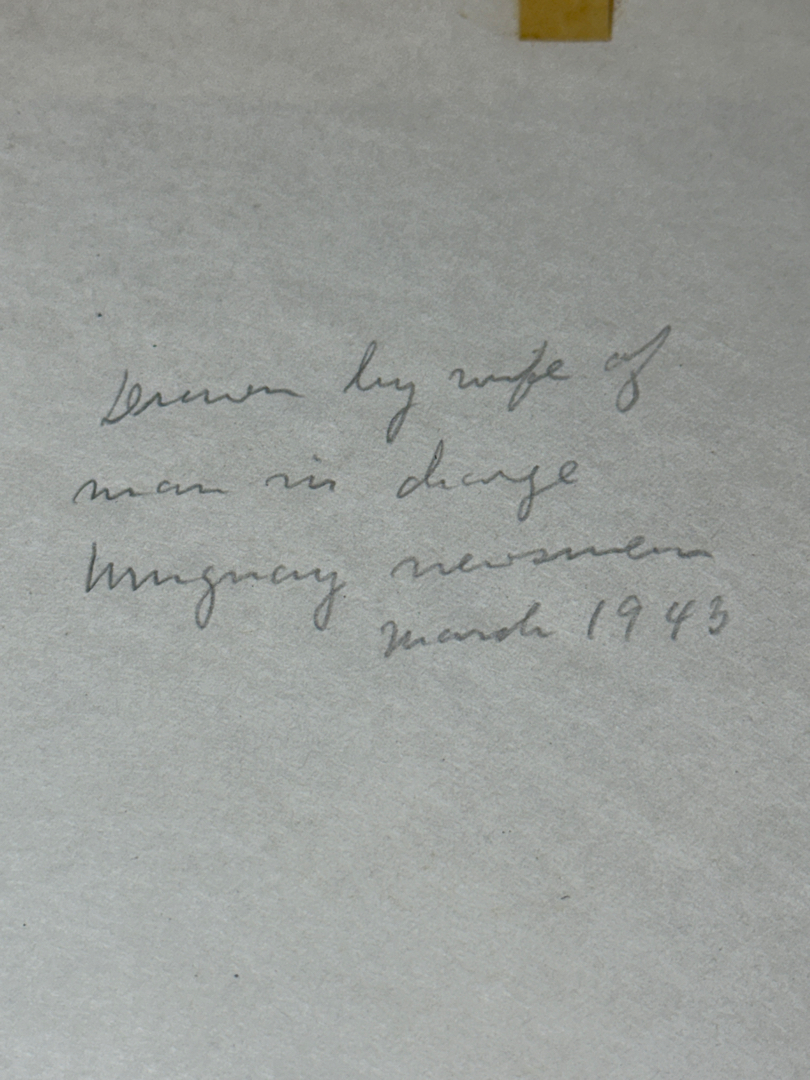 Drawn by wife of
man in charge
Uruguay newsmen
March 1943